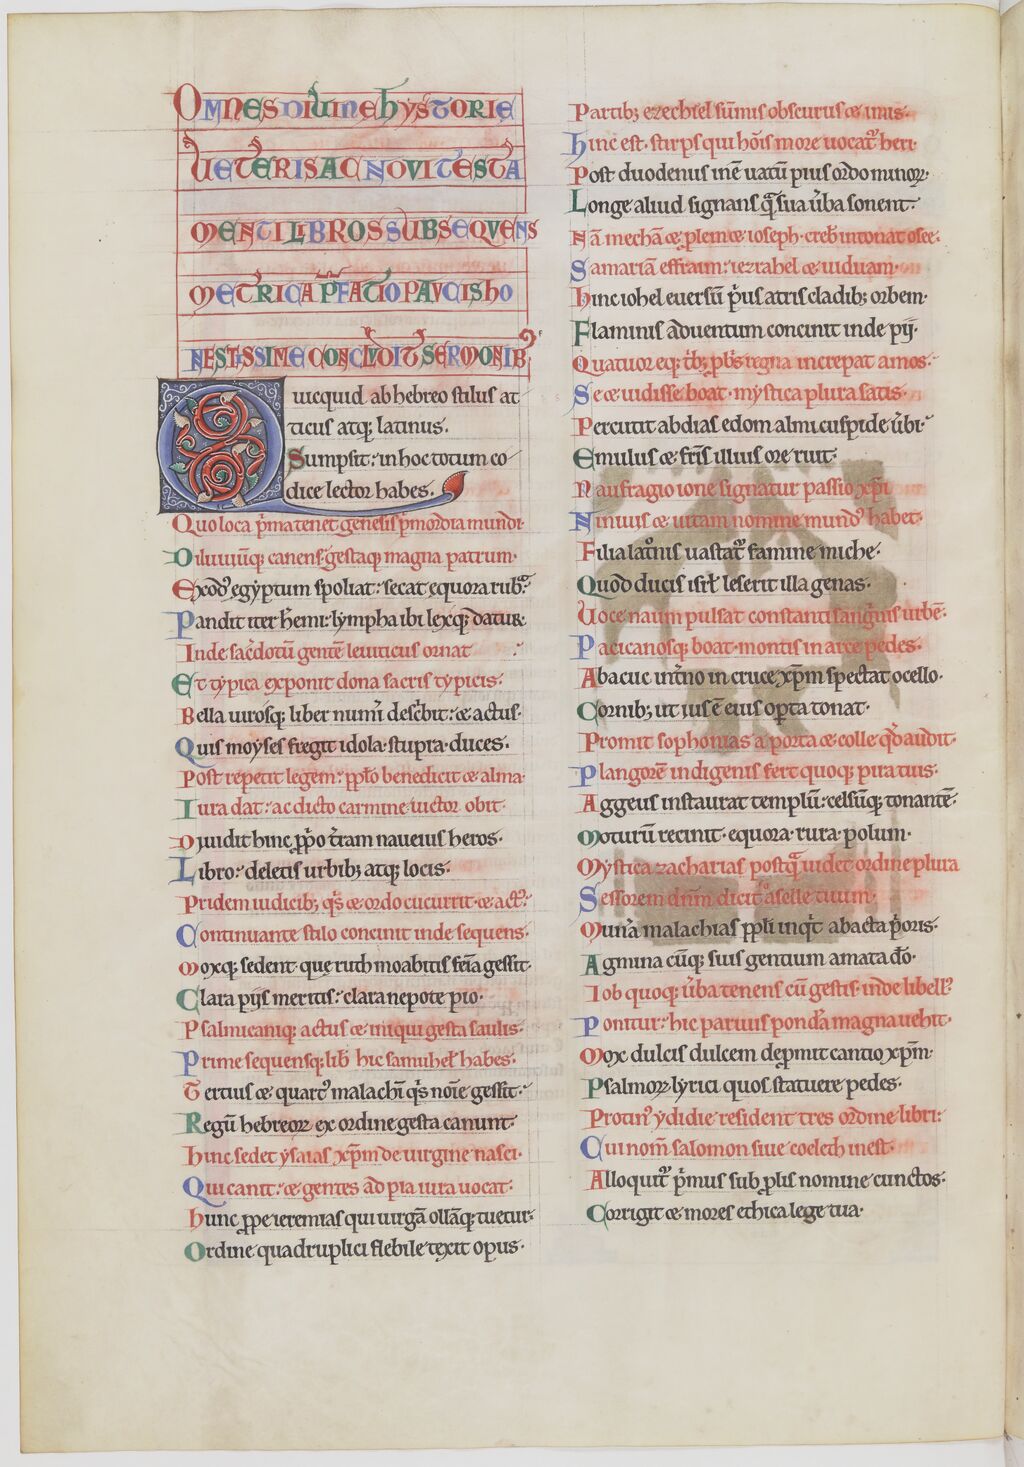 OMNES DIVINE HYSTORIE
VETERIS AC NOVI TESTA
MENTI LIBROS SUBSEQVENS
METRICA P̄FATIO PAVCIS HO
NESTISSIME CONCLVDIT SERMONIB9
Quicquid ab hebreo stilus at
ticus atq; latinus.
Sumpsit: in hoc totum co
dice lector habes.
Quo loca p̄ma tenet genesis p̄mordia mundi
Diluuiūq; canens gestaq; magna patrum.
Exod9 egyptum spoliat: secat equora rub
Pandit iter heremi: lympha ibi lexq; datur.
Inde sac̄dotū gentē leuiticus ornat
Et typica exponit dona sacris typicis.
Bella uirosq; liber num̄i desc̄bit: & actus.
Quis moyses fregit idola stupra duces.
Post repetit legem: pp̄lo benedicit & alma
Iura dat: ac dicto carmine uictor obit.
Diuidit hinc pp̄lo t̄ram naueius heros.
Libro: deletis urbib; atq; locis.
Pridem iudicib; q̄s & ordo cucurrit & act9
Continuante stilo concinit inde sequens.
Moxq; sedent que ruth moabitis femīa gessit.
Clara pijs meritis: clara nepote pio.
Psalmicaniq; actus & iniqui gesta saulis.
Prime sequensq; lib̄ hic samuhel habes.
Tertius & quart9 malachī q̄s noīe gessit.
Regū hebreoꝝ ex ordine gesta canunt.
Hinc sedet ysaias xp̄m de uirgine nasci.
Qui canit: & gentes ad pia iura uocat.
Hunc pp̄e ieremias qui uirgā ollāq; tuetur.
Ordine quadruplici flebile texit opus.
Partib; ezechiel sūmis obscurus & imis.
Hinc est stirps qui hōis more uocat̄ heri.
Post duodenus inē uatū pius ordo minoꝝ.
Longe aliud signans q̄ sua ūba sonent.
Nā mechā & plem & ioseph creb̄ intonat osee.
Samariā effraim: iezrahel & uiduam.
Hinc iohel euersū p̄us atris cladib; orbem.
Flaminis aduentum concinit inde pij.
Quatuor eq; trib; pb̄s regna increpat amos.
Se & uidisse boat mystica plura satis.
Percutit abdias edom almi cuspide ūbi
Emulus & fr̄is illius ore ruit.
Naufragio ione signatur passio xp̄i
Niniuis & uitam nomine mund9 habet.
Filia latonis uastat̄ famine miche.
Quod ducis isrl̄ leserit illa genas.
Uoce naum pulsat constanti sanḡnis urbē.
Pacicanosq; boat montis in arce pedes.
Abacuc int̄no in cruce xp̄m spectat ocello.
Cornib; ut ius ē eius op̄ta tonat.
Promit sophonias a porta & colle qd̄ audit.
Plangorē indigenis fert quoq; piratiuis.
Aggeus instaurat templū: celsūq; tonantē.
Moturū recinit equora rura polum.
Mystica zacharias postq̄ uidet ordine plura
Sessorem dn̄m dicit aselle tuum.
Mun̄a malachias ppl̄i inq̄t abacta p̄oris.
Agmina cūq; suis gentium amata dō.
Iob quoq; ūba tenens cū gestis inde libell9
Ponitur: hic paruus pond̄a magna uehit.
Mox dulcis dulcem dep̄mit cantio xp̄m.
Psalmoꝝ lyrici quos statuere pedes.
Protin9 ydidie resident tres ordine libri:
Cui nom̄ salomon siue coeleth inest.
Alloquit̄ p̄mus sub p̄lis nomine cunctos.
Corrigit & mores ethica lege tua.